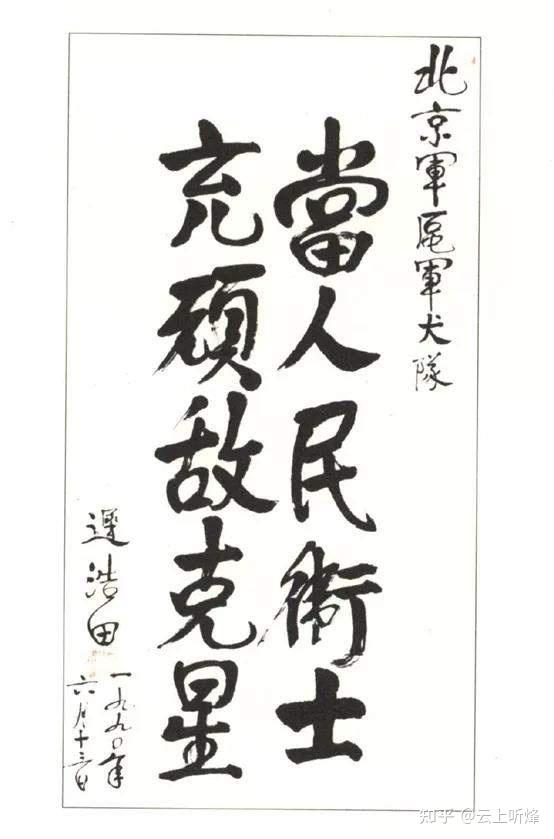 北京軍區軍犬隊
當人民衛士
充頑敵克星
遲浩田
一九九〇年
六月十三日
知乎 @云上听烽